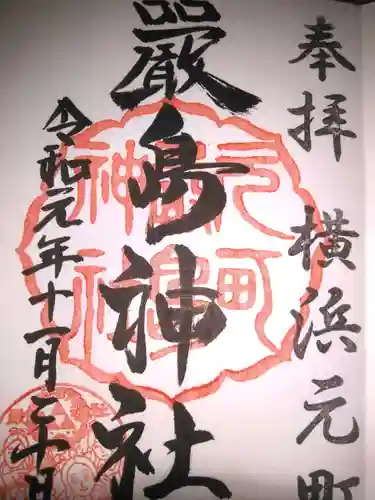 奉拝 横浜元町
厳島神社
令和元年十一月二十日
元町
嚴島
神社